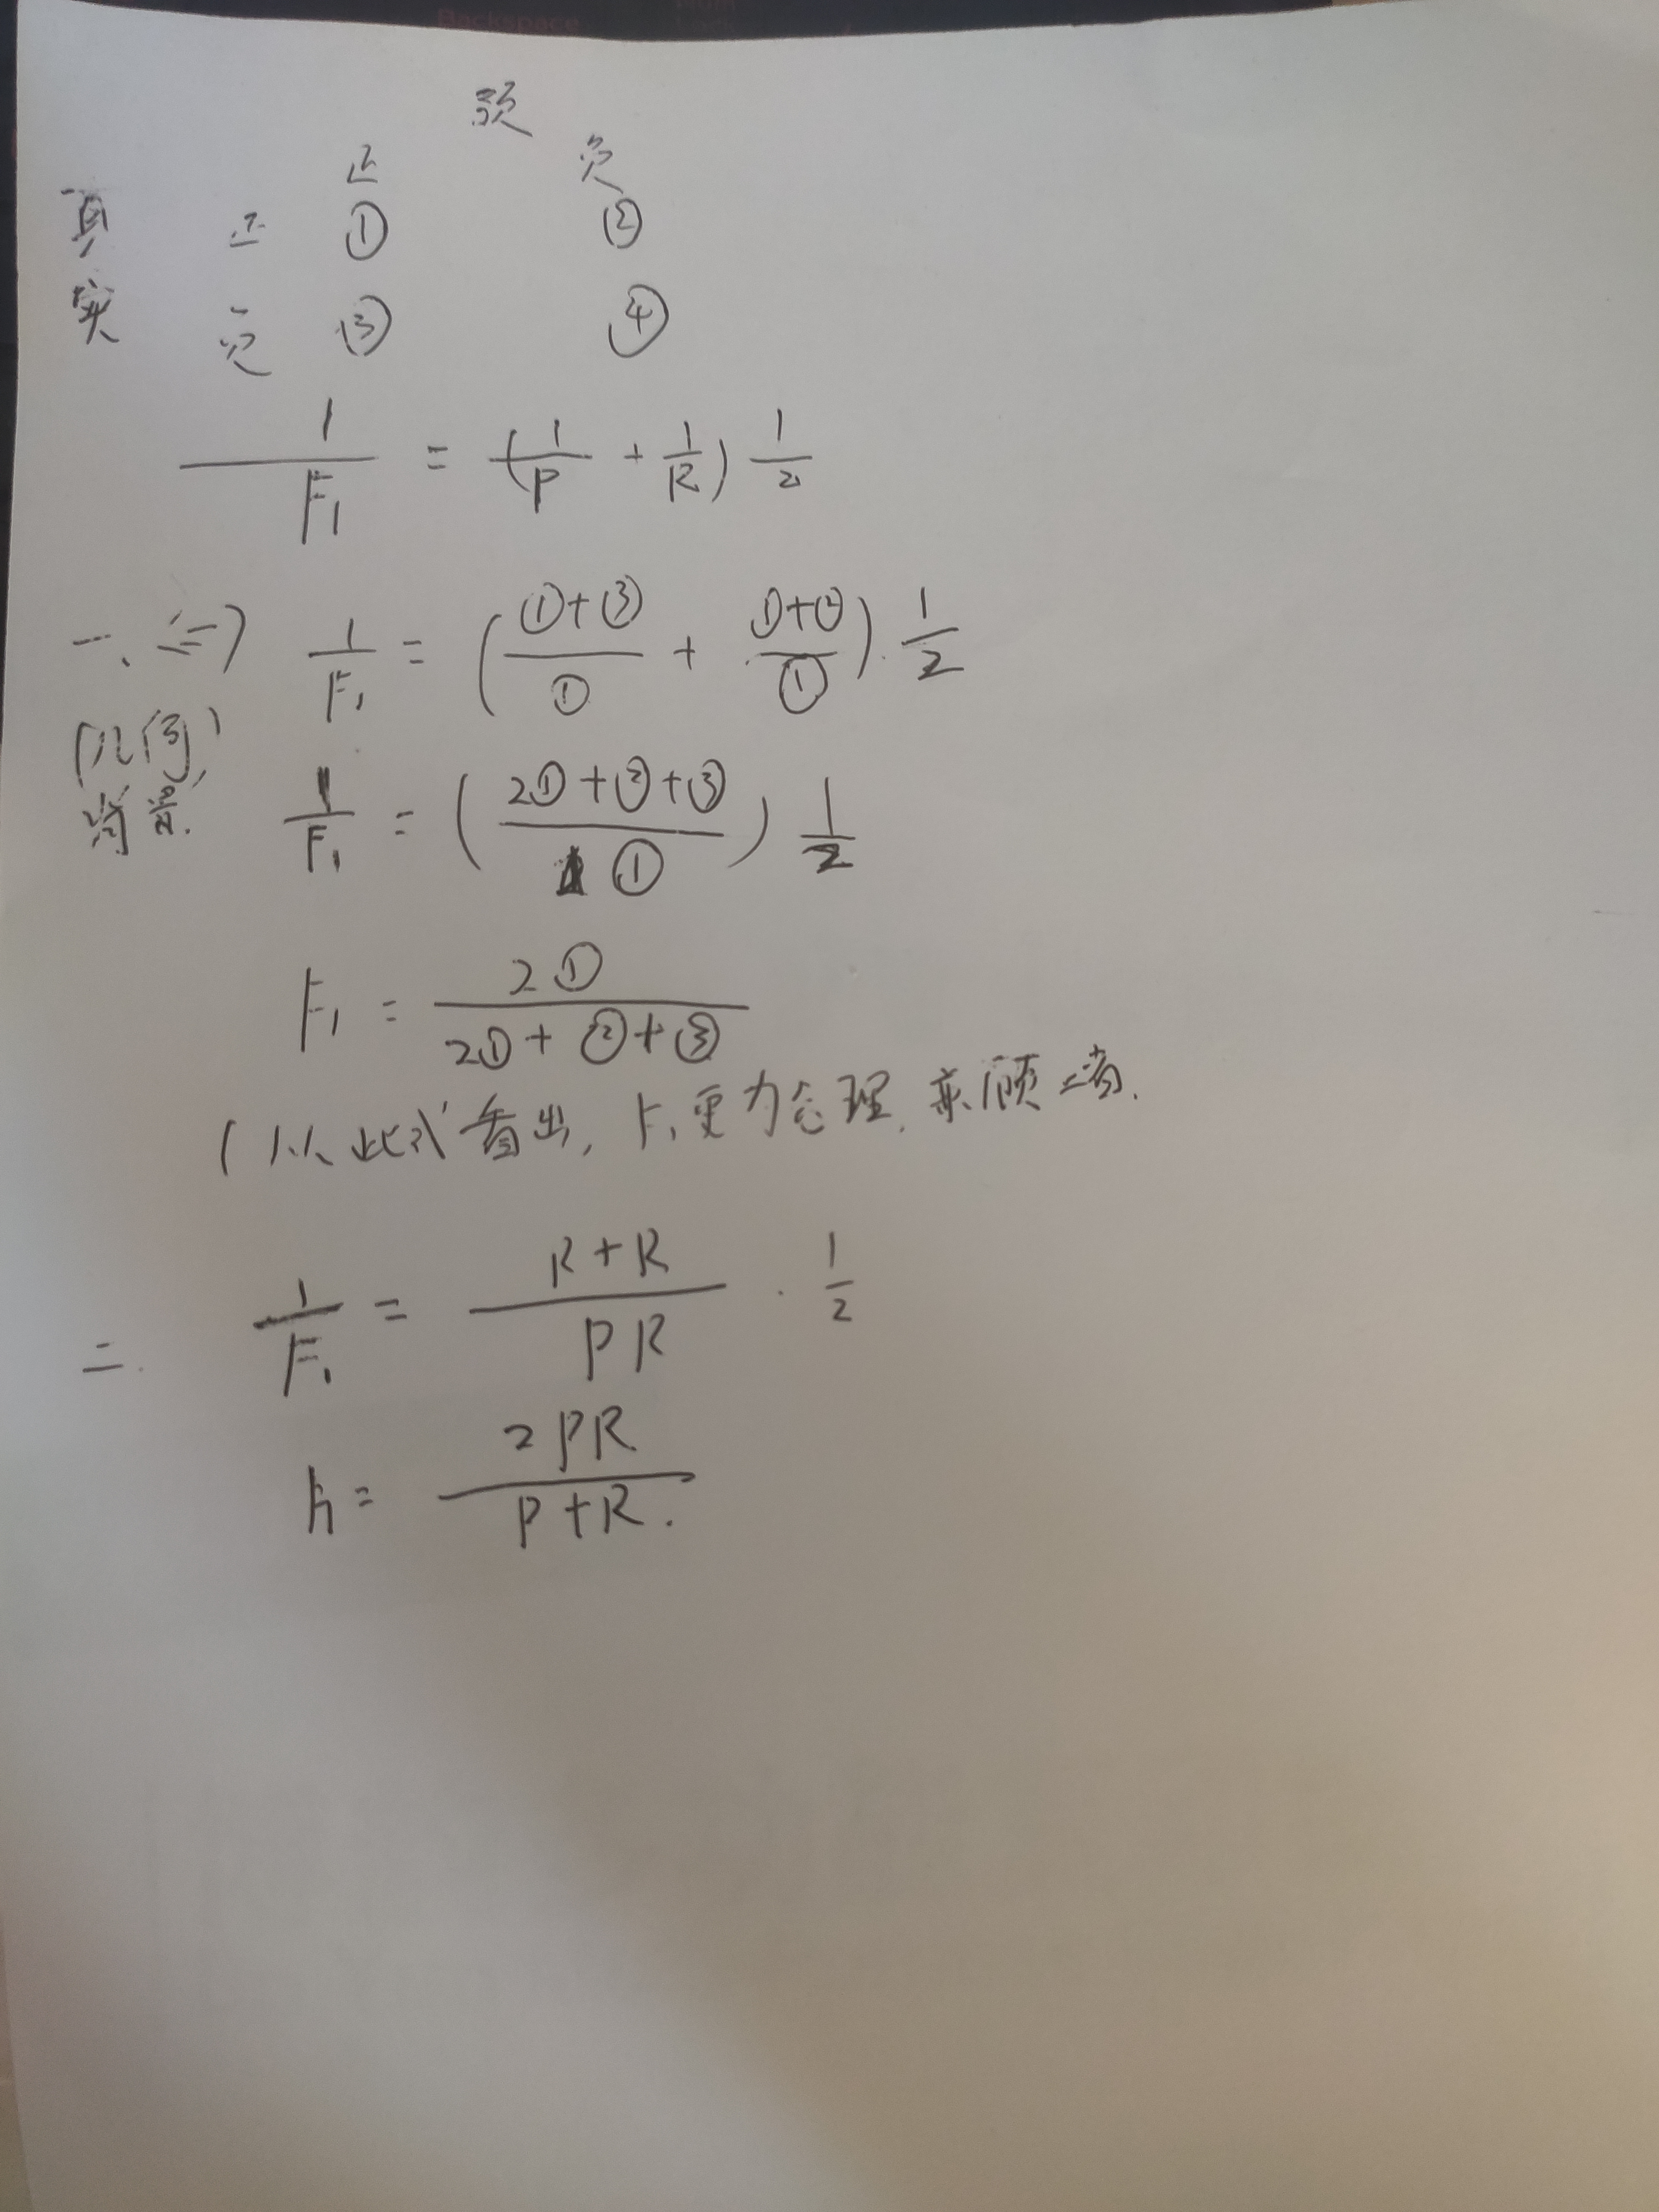 预
正 负
真 正 ① ②
实 负 ③ ④
1/F₁ = (1/P + 1/R) 1/2
一、<=> 1/F₁ = ((①+③)/① + (①+②)/①) · 1/2
(几何)
背景. 1/F₁ = ((2①+②+③)/①) 1/2
F₁ = 2①/(2①+②+③)
(从此式看出, F₁更为合理, 兼顾二者.
二. 1/F₁ = (R+R)/(PR) · 1/2
F₁ = 2PR/(P+R).